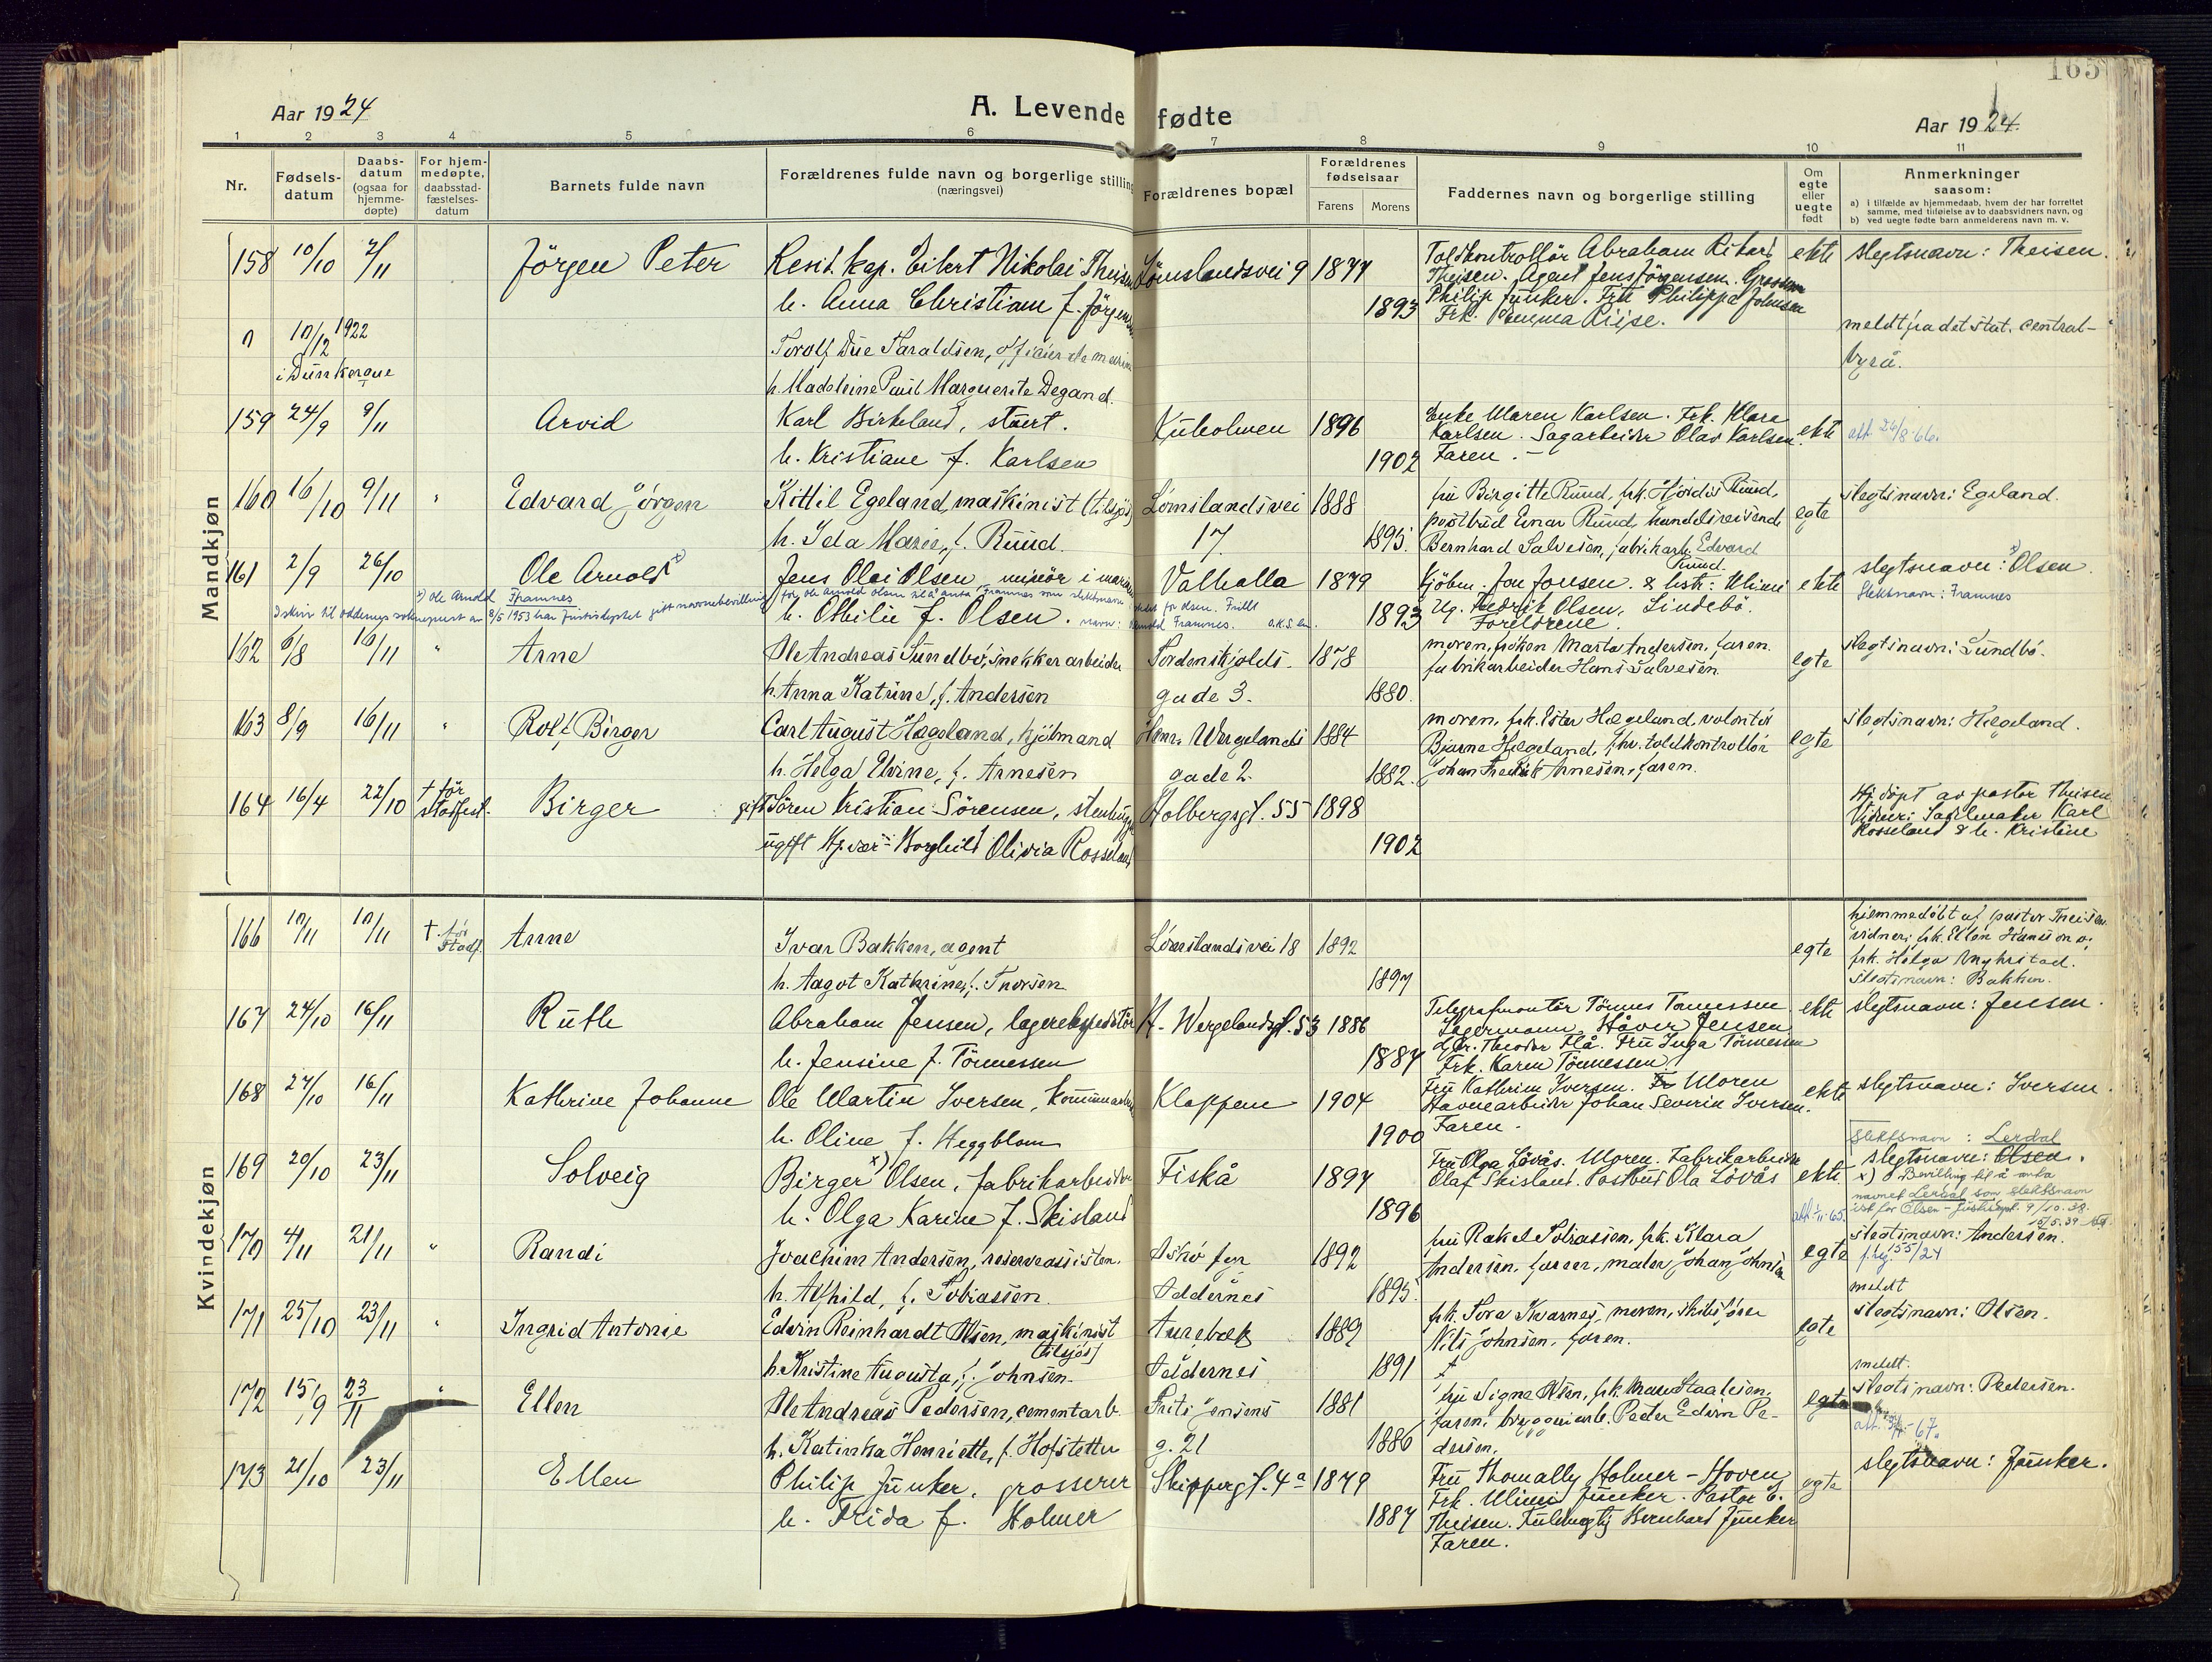 165
Aar 1924
A. Levende fødte
Aar 1924.
1 2 3 4 5 6 7 8 9 10 11
Nr.
Fødsels-
datum
Daabs-
datum
(ogsaa for
hjemme-
døpte)
For hjem-
medøpte,
daabsstad-
fæstelses-
datum
Barnets fulde navn
Forældrenes fulde navn og borgerlige stilling
(næringsvei)
Forældrenes bopæl
Forældrenes
fødselsaar
Farens
Morens
Faddernes navn og borgerlige stilling
Om
egte
eller
uegte
født
Anmerkninger
saasom:
a) i tilfælde av hjemmedaab, hvem der har forrettet
samme, med tilføielse av to daabsvidners navn, og
b) ved uegte fødte barn anmelderens navn m. v.
Mandkjøn
158 10/10 2/11 Jörgen Peter
Resid. kap. Eilert Nikolai Theisen
h. Anna Christiane f. Jörgensen
Lömslandsvei 9 1877
1893
Toldkontrollör Abraham Rikard
Theisen. Agent Jens Jörgensen. Grosserer
Philip Junker. Fru Philippa Johnsen
Frk. Emma Riise.
ekte
slegtsnavn: Theisen.
10/12 1922
i Dunkerque
Torolf Due Haraldsen, officier de marine
h. Madeleine Paul Marguerite Degand.
meldt fra det stat. central-
byrå.
159 24/9 9/11 Arvid
Karl Birkeland, stuert.
h. Kristiane f. Karlsen
Kuholmen 1896
1902
Enke Maren Karlsen. Frk. Klara
Karlsen. Sagarbeider Olav Karlsen.
Faren. -
ekte
att 26/8-66.
160 16/10 9/11 " Edvard Jörgen
Kittil Egeland, maskinist (tilsjös)
h. Ida Marie, f. Ruud.
Lömslandsvei
17
1888
1895.
fru Birgitte Ruud, frk. Hjördis Ruud,
postbud Einar Ruud, handelsreisende
Bernhard Salvesen, fabrikarb. Edvard
Ruud.
egte
slegtsnavn: Egeland.
161 2/9 26/10 Ole Arnold x)
Jens Olai Olsen, minör i marinen
h. Othilie f. Olsen.
Valhalla 1879
1893
Kjöbm. Jon Jonsen. & hstr: Minni
Ug. Fredrik Olsen, Lindebö.
Foreldrene.
ekte
slegtsnavn: x) Olsen.
Slektsnavn: Framnes
x) Ole Arnold Framnes
I skriv til Oddernes sokneprest av 8/5 1953 har Justisdeptet gitt navnebevilling for Ole Arnold Olsen til å anta Framnes som slektsnavn istedet for Olsen. Fullt
navn: Ole Arnold Framnes.
162 6/8 16/11 " Arne
Ole Andreas Sundbö, snekkerarbeider
h. Anna Katrine, f. Andersen
Tordenskjolds-
gade 3.
1878
1880.
moren, fröken Marta Andersen, faren.
fabrikarbeider Hans Salvesen.
egte
slegtsnavn: Sundbö.
163 8/9 16/11 " Rolf Birger
Carl August Hægeland, kjöbmand
h. Helga Elvine, f. Arnesen
Henr. Wergelands
gade 2.
1884
1882.
moren, frk. Ester Hægeland, volontör
Bjarne Hægeland, fhv. toldkontrollör
Johan Fredrik Arnesen, faren.
egte
slegtsnavn: Hægeland.
164 16/4 22/10 † för
stadfest. Birger
gift Sören Kristian Sörensen, stenhugger
ugift Hj.vær: Borghild Olivia Rosseland
Holbergsgt. 55 1898
1902
Hj. döpt av pastor Theisen
Vidner: Sadelmaker Karl
Rosseland & h. Kristine
Kvindekjøn
166 10/11 10/11 † för
stadf. Anne
Ivar Bakken, agent
h. Aagot Kathrine, f. Thorsen
Lömslandsvei 18 1892
1897
egte
hjemmedöbt af pastor Theisen
vidner: frk. Ellen Hansson o:
frk. Helga Myhrstad.
slegtsnavn: Bakken.
167 24/10 16/11 Ruth
Abraham Jensen, lagerekspeditör
h. Jensine f. Tönnessen
H. Wergelandsgt. 53 1886
1887
Telegrafmontör Tönnes Tönnessen
Lagermann Håver Jensen
Theodor Flå. Fru Inga Tönnessen
Frk. Karen Tönnessen
ekte
slegtsnavn: Jensen.
168 27/10 16/11 Kathrine Johanne
Ole Martin Iversen, kommunearb.
h. Oline f. Heggblom
Kloppen 1904
1900
Fru Kathrine Iversen. Moren
Havnearbeider Johan Severin Iversen.
Faren.
ekte
slegtsnavn: Iversen.
169 20/10 23/11 Solveig
Birger x) Olsen, fabrikarbeider
h. Olga Karine f. Skisland
Fiskå 1897
1896
Fru Olga Lövås. Moren. Fabrikarbeider
Olaf Skisland. Postbud Ola Lövås
ekte
att. 1/11-65.
Slektsnavn: Lerdal
slegtsnavn: Olsen.
x) Bevilling til å anta
navnet Lerdal som slektsnavn
istf. for Olsen - Justisdept. 9/10.38.
15/5.39
170 4/11 21/11 " Randi
Joachim Andersen, reserveassistent.
h. Alfhild, f. Tobiassen.
Oksö fyr
Oddernes
1892
1895.
fru Rakel Tobiassen, frk. Klara
Andersen, faren, maler Johan Johnsen
egte
slegtsnavn: Andersen.
f. reg. 155/24
171 25/10 23/11 " Ingrid Antonie
Edvin Reinhardt Olsen, maskinist
(tilsjös)
h. Kristine Augusta, f. Johnsen.
Aurebæk
Oddernes
1889
1891
frk. Tora Kvarnes, moren, skibsförer
Nils Johnsen, faren.
egte
meldt
slegtsnavn: Olsen.
172 15/9 23/11 " Ellen
Ole Andreas Pedersen, cementarb.
h. Katinka Henriette, f. Hofstetter
Frits Jensens
g. 21
1881
1886
fru Signe Olsen, frk. Maren Staalesen,
faren, bryggeriarb. Peder Edvin Pe-
dersen.
egte
meldt.
slegtsnavn: Pedersen.
att. -67.
173 21/10 23/11 Ellen
Philip Junker, grosserer
h. Frida f. Holmer
Skippergt. 4a 1879
1887
Fru Thomally Holmer-Hoven
Frk. Minni Junker. Pastor E.
Theisen. Fuldmegtig Bernhard Junker
Faren.
egte
slegtsnavn: Junker.